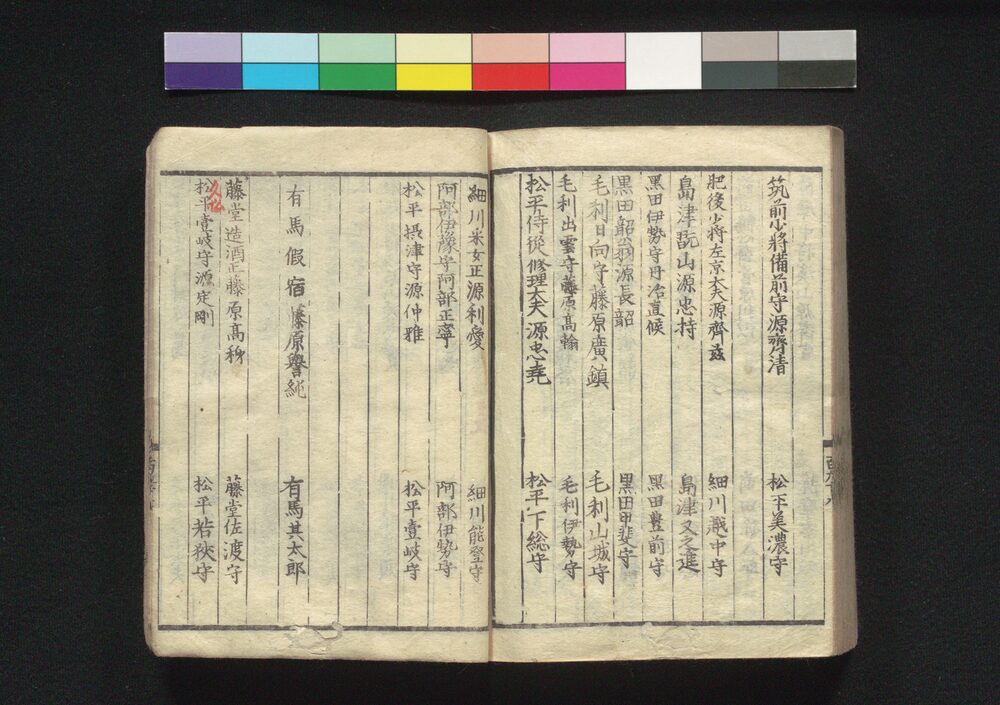 筑前少将備前守源齊清　松下美濃守
肥後少将左京大夫源齊茲　細川越中守
島津翫山源忠持　島津又之進
黒田伊勢守丹治直候　黒田豊前守
黒田韶翁源長韶　黒田甲斐守
毛利日向守藤原廣鎮　毛利山城守
毛利出雲守藤原高翰　毛利伊勢守
松平侍従修理大夫源忠堯　松平下総守
細川采女正源利愛　細川能登守
阿部伊豫守阿部正寧　阿部伊勢守
松平摂津守源仲雅　松平壹岐守
有馬假宿藤原譽純　有馬其太郎
藤堂造酒正藤原高秭　藤堂佐渡守
久松
松平壹岐守源定剛　松平若狭守